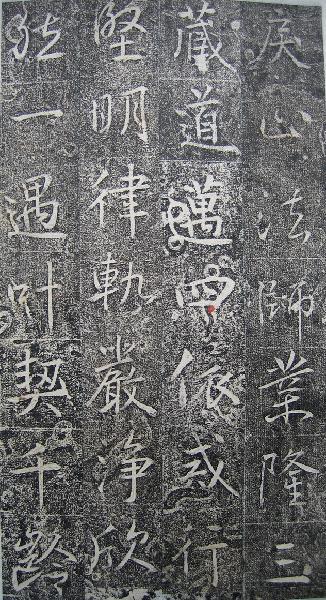 山法師業隆三
藏道邁四依戒行
堅明律軌嚴淨欣
然一遇叶契千齡